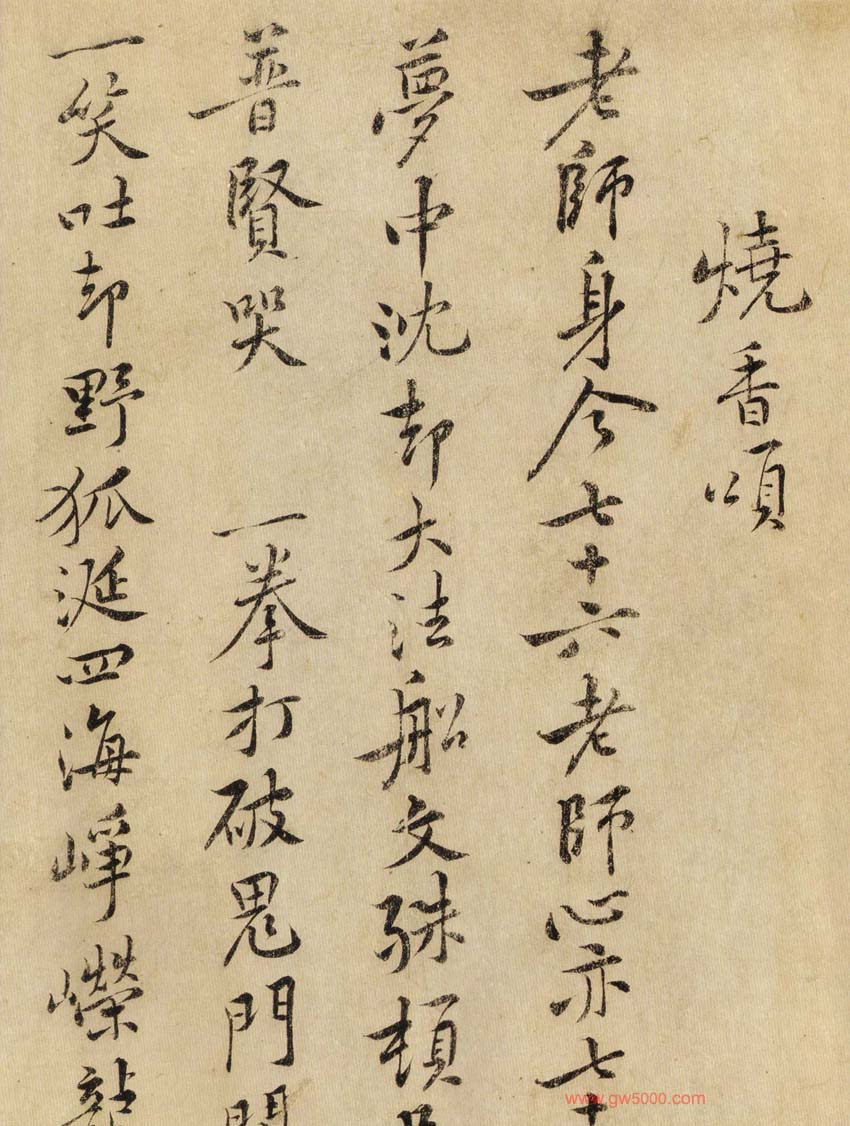 燒香頌
老師身今七十六老師心亦七十
夢中沈却大法船文殊頓足
普賢哭 一拳打破鬼門關
一笑吐却野狐涎四海崢嶸
www.gw5000.com